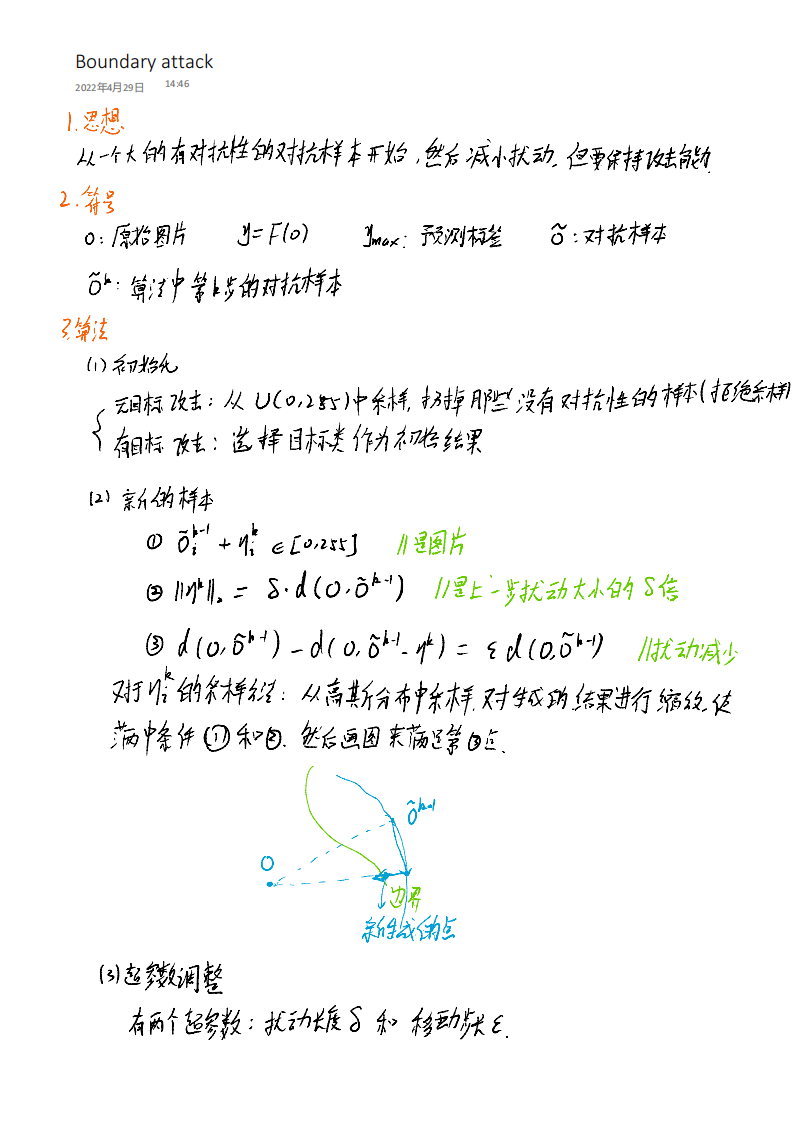 Boundary attack
2022年4月29日 14:46
1.思想
从一个大的有对抗性的对抗样本开始,然后减小扰动,但要保持攻击能力.
2.符号
O:原始图片 y=F(O) yₘₐₓ:预测标签 Õ:对抗样本
Õᵏ:算法中第k步的对抗样本
3.算法
(1)初始化
无目标攻击:从U(0,255)中采样,扔掉那些没有对抗性的样本(拒绝采样)
有目标攻击:选择目标类作为初始结果
(2)新的样本
① Õᵢᵏ⁻¹ + ηᵢᵏ ∈[0,255] //是图片
② ‖ηᵏ‖₂ = δ·d(O,Õᵏ⁻¹) //是上一步扰动大小的δ倍
③ d(O,Õᵏ⁻¹) - d(O,Õᵏ⁻¹-ηᵏ) = εd(O,Õᵏ⁻¹) //扰动减少
对于ηᵢᵏ的采样方法:从高斯分布中采样,对生成的结果进行缩放,使
满中条件①和②. 然后画图来满足第③点.
Õᵏ⁻¹
O
边界
新生成的点
(3)超参数调整
有两个超参数:扰动长度δ和移动步长ε.